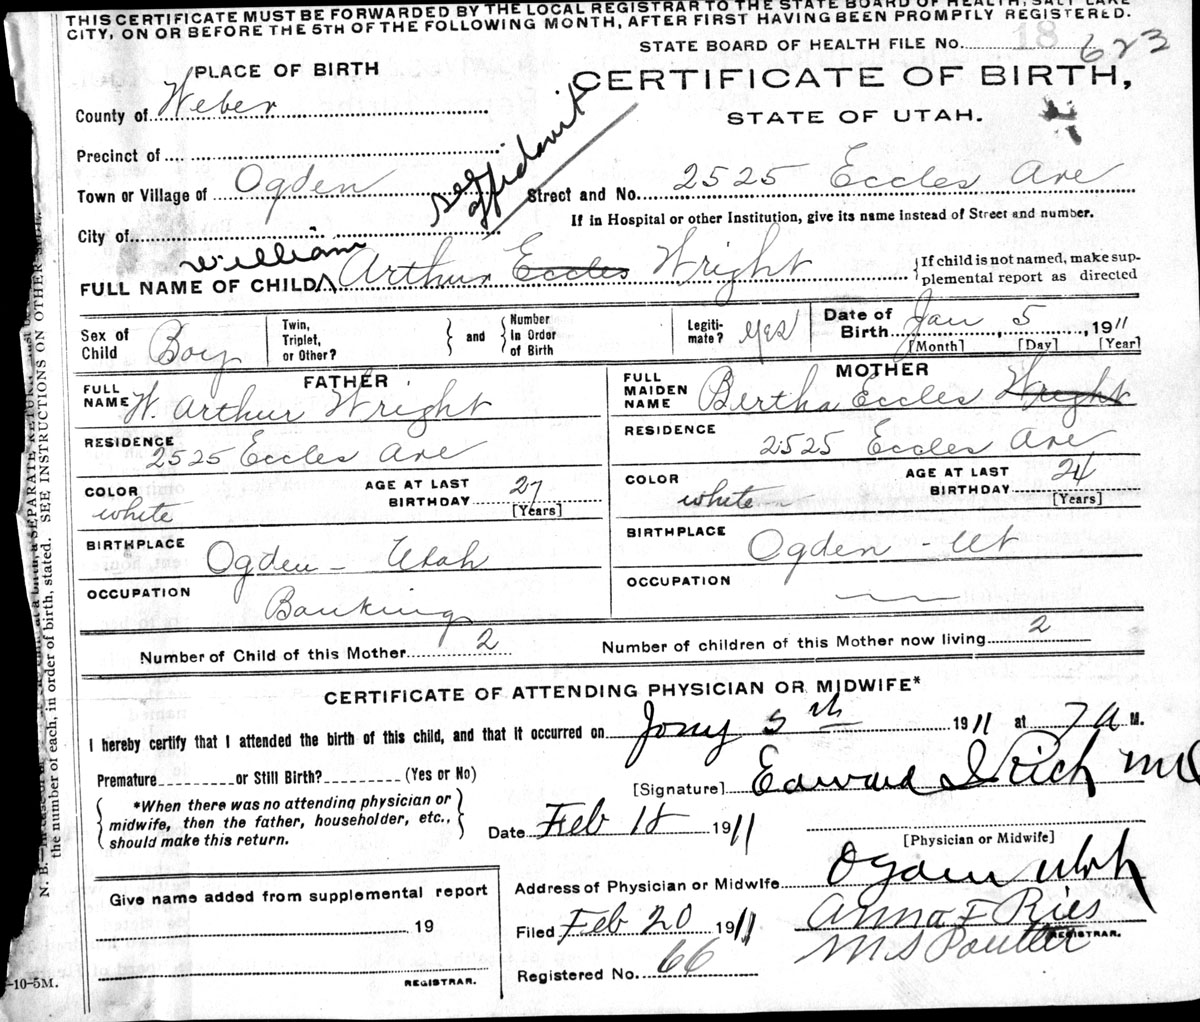 THIS CERTIFICATE MUST BE FORWARDED BY THE LOCAL REGISTRAR TO THE STATE BOARD OF HEALTH, SALT LAKE
CITY, ON OR BEFORE THE 5TH OF THE FOLLOWING MONTH, AFTER FIRST HAVING BEEN PROMPTLY REGISTERED.
STATE BOARD OF HEALTH FILE No. 18 623
PLACE OF BIRTH
CERTIFICATE OF BIRTH,
County of Weber
STATE OF UTAH.
Precinct of
see affidavit
Town or Village of Ogden
Street and No. 2525 Eccles Ave
If in Hospital or other Institution, give its name instead of Street and number.
City of
William
FULL NAME OF CHILD Arthur Eccles Wright
If child is not named, make sup-
plemental report as directed
Sex of Child Boy
Twin, Triplet, or Other?
and
Number In Order of Birth
Legiti- mate? yes
Date of Birth Jan 5, 1911
[Month] [Day] [Year]
FATHER
FULL NAME W. Arthur Wright
RESIDENCE
2525 Eccles Ave
COLOR white
AGE AT LAST BIRTHDAY 27 [Years]
BIRTHPLACE Ogden - Utah
OCCUPATION Banking
MOTHER
FULL MAIDEN NAME Bertha Eccles Wright
RESIDENCE
2525 Eccles Ave
COLOR white
AGE AT LAST BIRTHDAY 24 [Years]
BIRTHPLACE Ogden - Ut
OCCUPATION
Number of Child of this Mother 2
Number of children of this Mother now living 2
CERTIFICATE OF ATTENDING PHYSICIAN OR MIDWIFE*
I hereby certify that I attended the birth of this child, and that it occurred on Jany 5th 1911 at 7 A M.
Premature or Still Birth? (Yes or No)
[Signature] Edward I Rich MD
*When there was no attending physician or
midwife, then the father, householder, etc.,
should make this return.
Date Feb 18 1911
[Physician or Midwife]
Give name added from supplemental report
19
REGISTRAR.
Address of Physician or Midwife Ogden Utah
Filed Feb 20 1911
Anna F Ries
M S Poulter
REGISTRAR.
Registered No. 66
-10-5M.
SEE INSTRUCTIONS ON OTHER SIDE.
the number of each, in order of birth, stated.